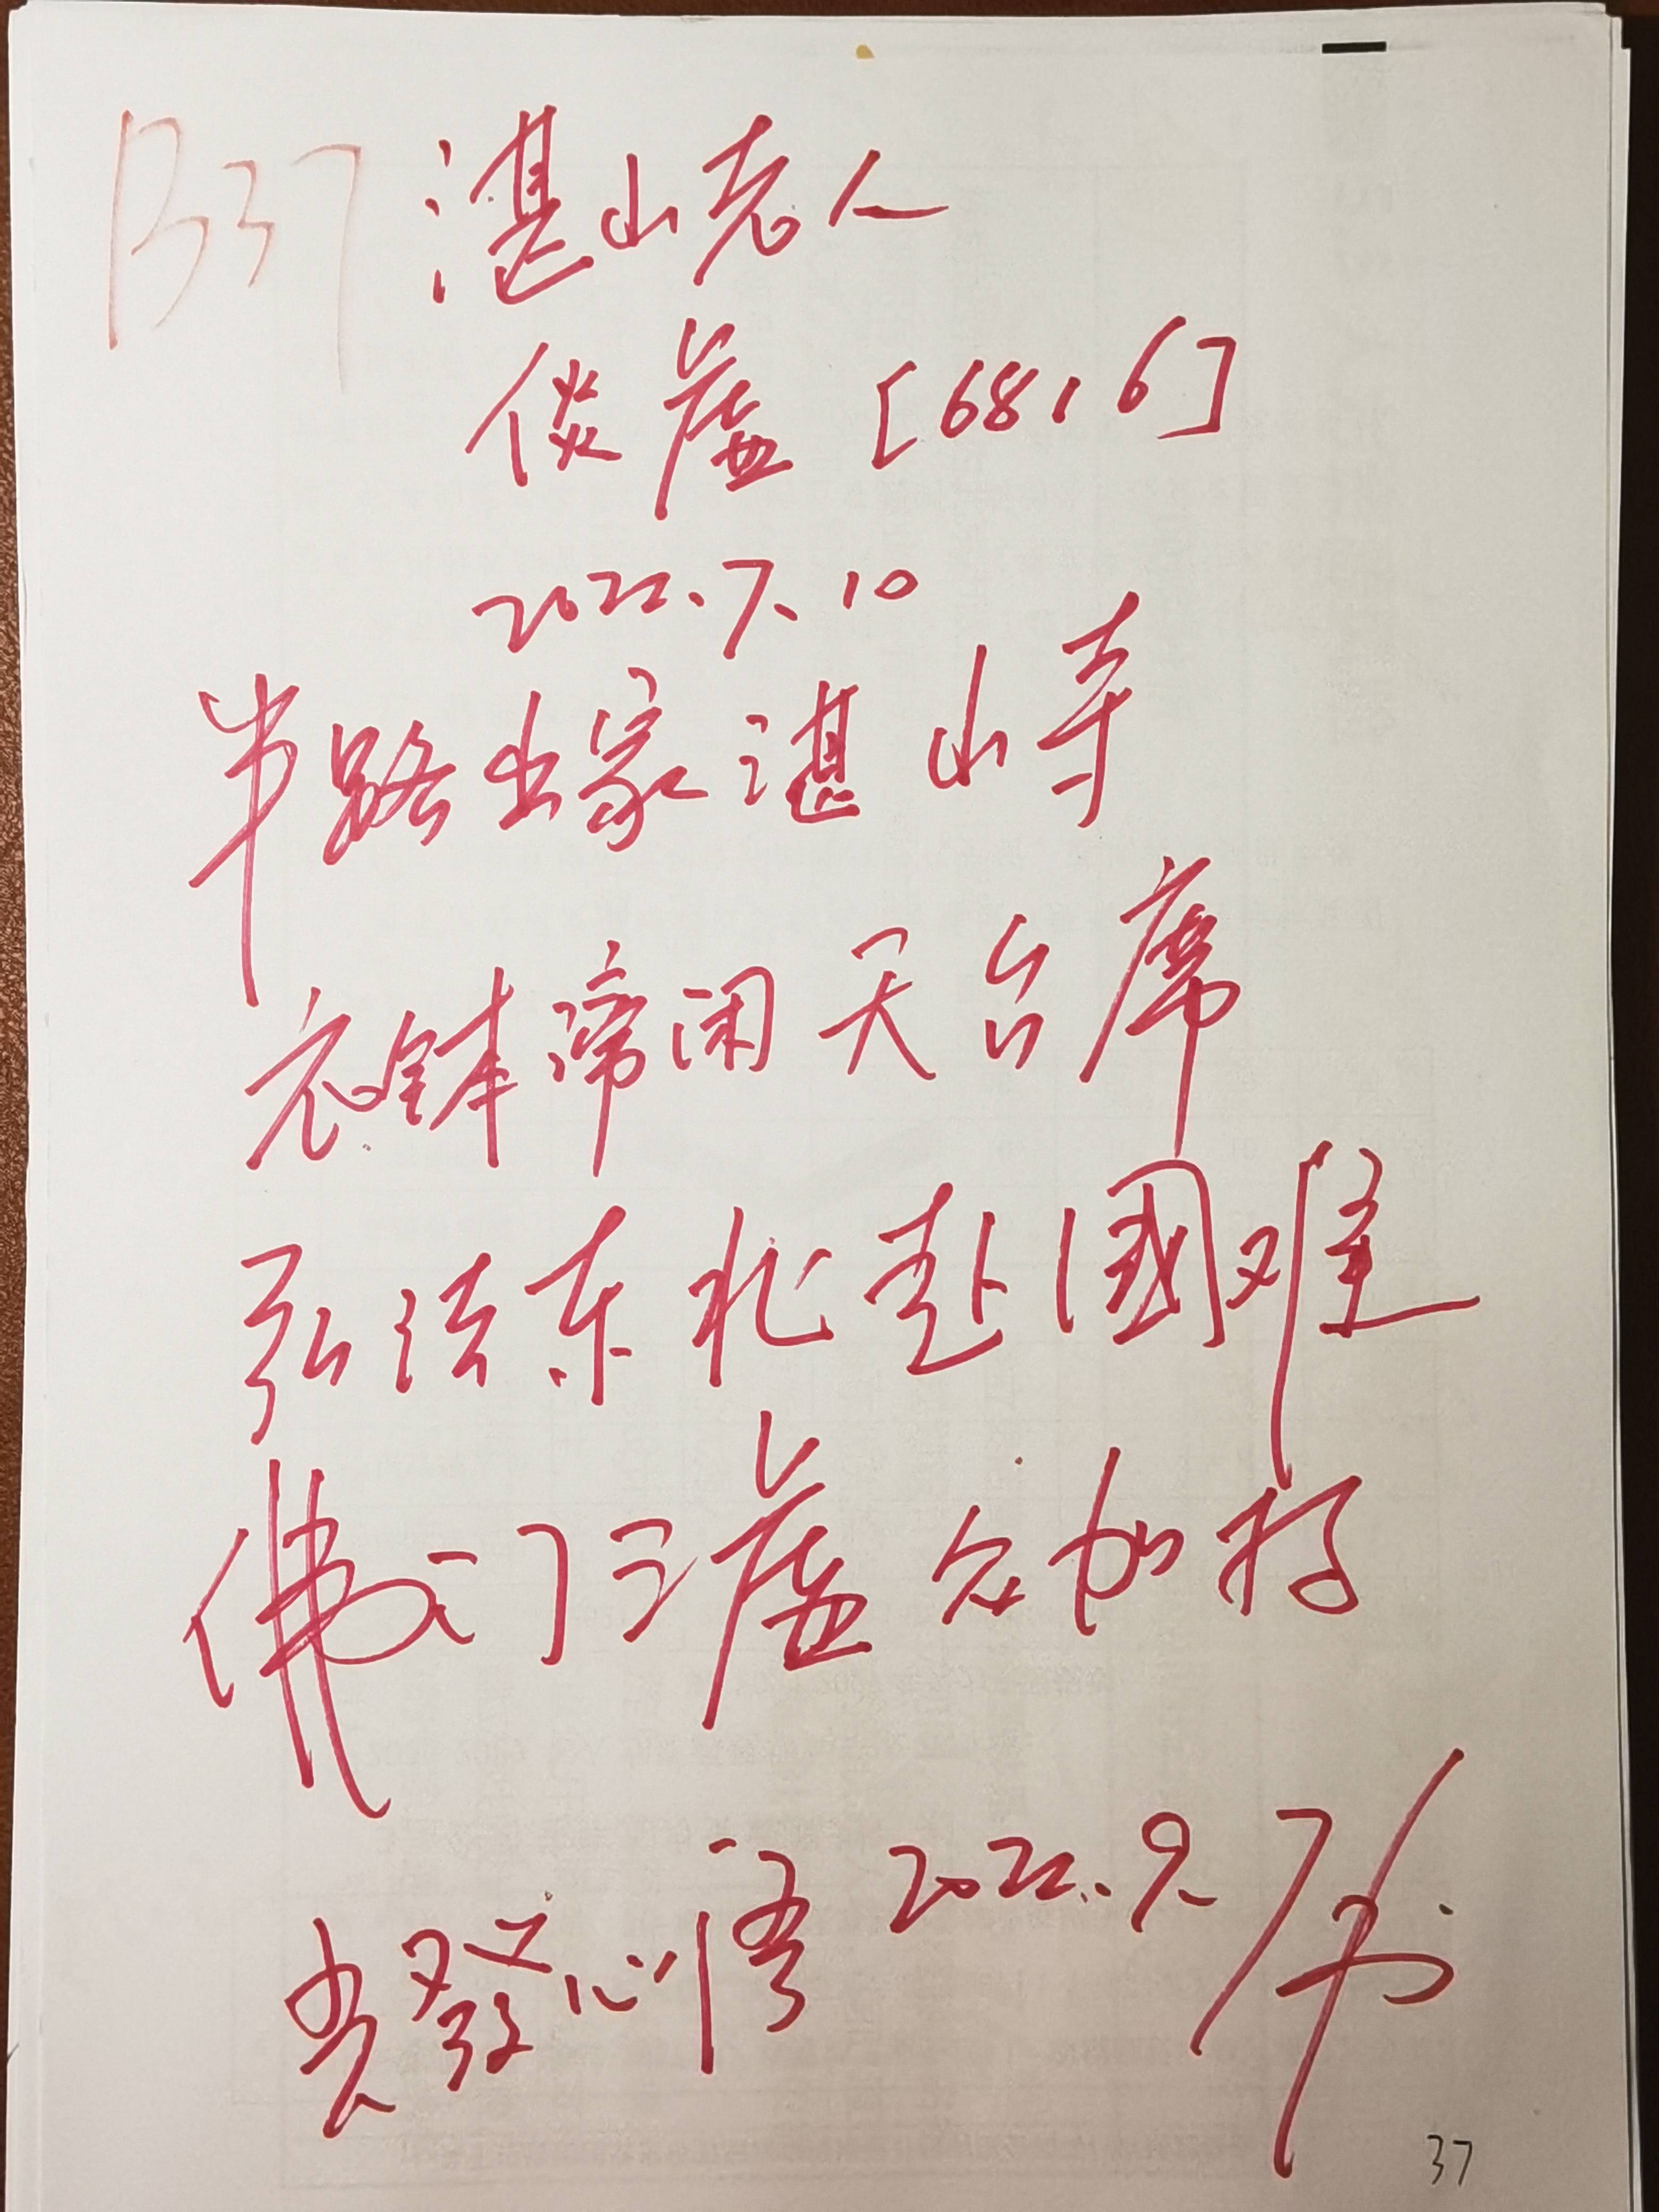 B37
湛山老人
倓虚 [6816]
2022.7.10
半路出家湛山寺
衣钵谛闲天台席
弘法东北赴國难
佛门三虚念加持
贵發心悟 2022.9.7书
37